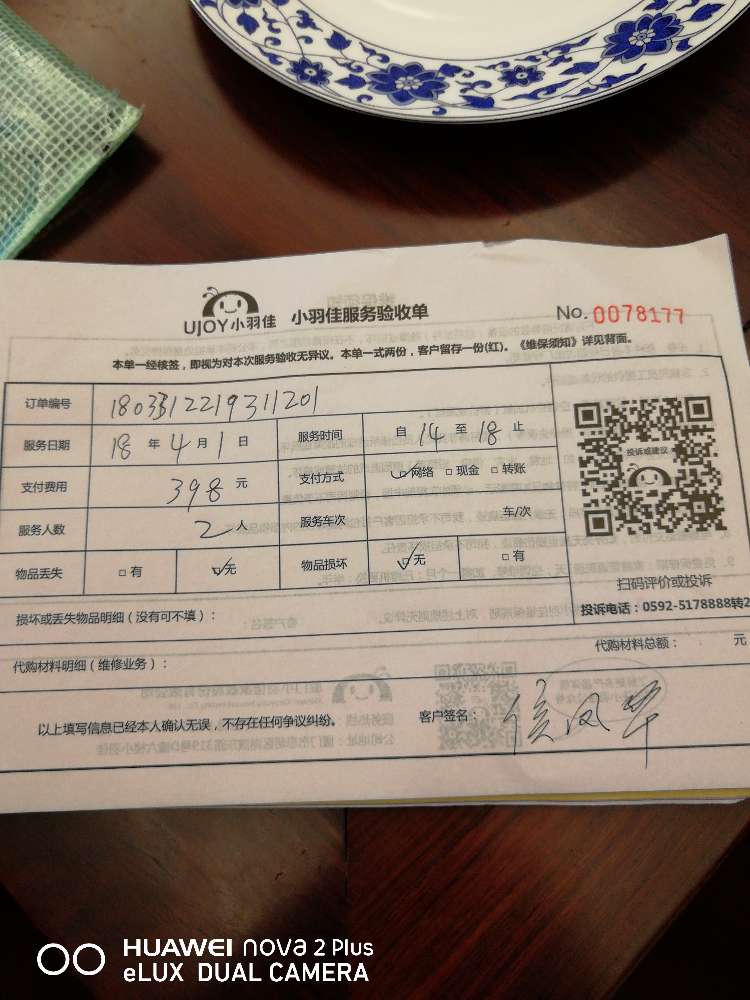 UJOY小羽佳 小羽佳服务验收单 No.0078177
本单一经核签，即视为对本次服务验收无异议。本单一式两份，客户留存一份(红)。《维保须知》详见背面。
订单编号
服务日期 18 年 4 月 1 日 服务时间 自 14 至 18 止
支付费用 398 元 支付方式 ☑网络 □现金 □转账
服务人数 2 人 服务车次 车/次
物品丢失 □有 ☑无 物品损坏 ☑无 □有
投诉或建议
扫码评价或投诉
投诉电话：0592-5178888转2
损坏或丢失物品明细（没有可不填）：
代购材料明细（维修业务）： 代购材料总额： 元
以上填写信息已经本人确认无误，不存在任何争议纠纷。 客户签名： 侯凤华
HUAWEI nova 2 Plus
eLUX DUAL CAMERA